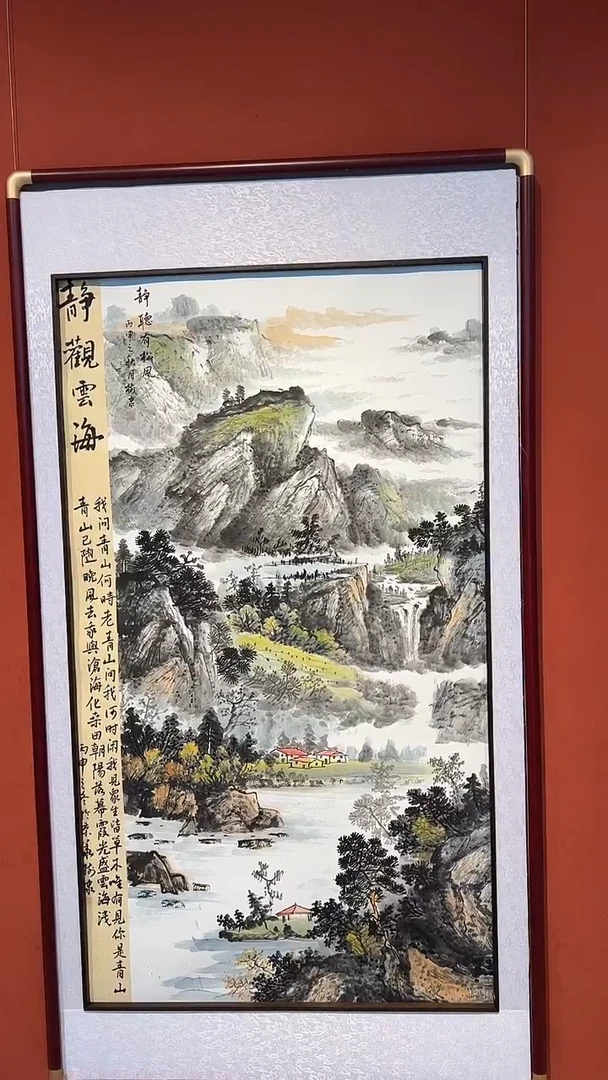 靜聽有松風
丙申之秋月
靜觀雲海
我问青山何時老青山问我何时闲我見衆生皆草木唯有見你是青山
青山已隨晚風去我與滄海化桑田朝陽落幕霞光盛雲海淺
丙申之冬於京